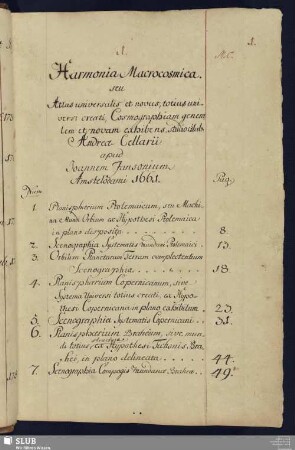 1.
Harmonia Macrocosmica.
seu
Atlas universalis et novus, totius uni-
versi creati, Cosmographiam genera-
lem et novam exhibens, studio et lab.
Andreæ Cellarii
apud
Joannem Jansonium
Amstelodami 1661.
Num. Pag.
1. Planisphærium Ptolemaicum, seu Machi-
na Mundi Orbium ex Hypothesi Ptolemaica
in plano disposita. 8.
2. Scenographia Systematis Mundani Ptolemaici. 13.
3. Orbium Planetarum Terram complectentium
Scenographia. 18.
4. Planisphærium Copernicanum, sive
Systema Universi totius creati, ex Hypo-
thesi Copernicana in plano exhibitum. 23.
5. Scenographia Systematis Copernicani. 31.
6. Planisphærium Braheum, sive mun-
di totius, ex Hypothesi Tichonis Bra-
hei, in plano delineata. 44.
7. Scenographia Compagis Mundanæ Braheæ. 49.
SLUB
Wir führen Wissen.